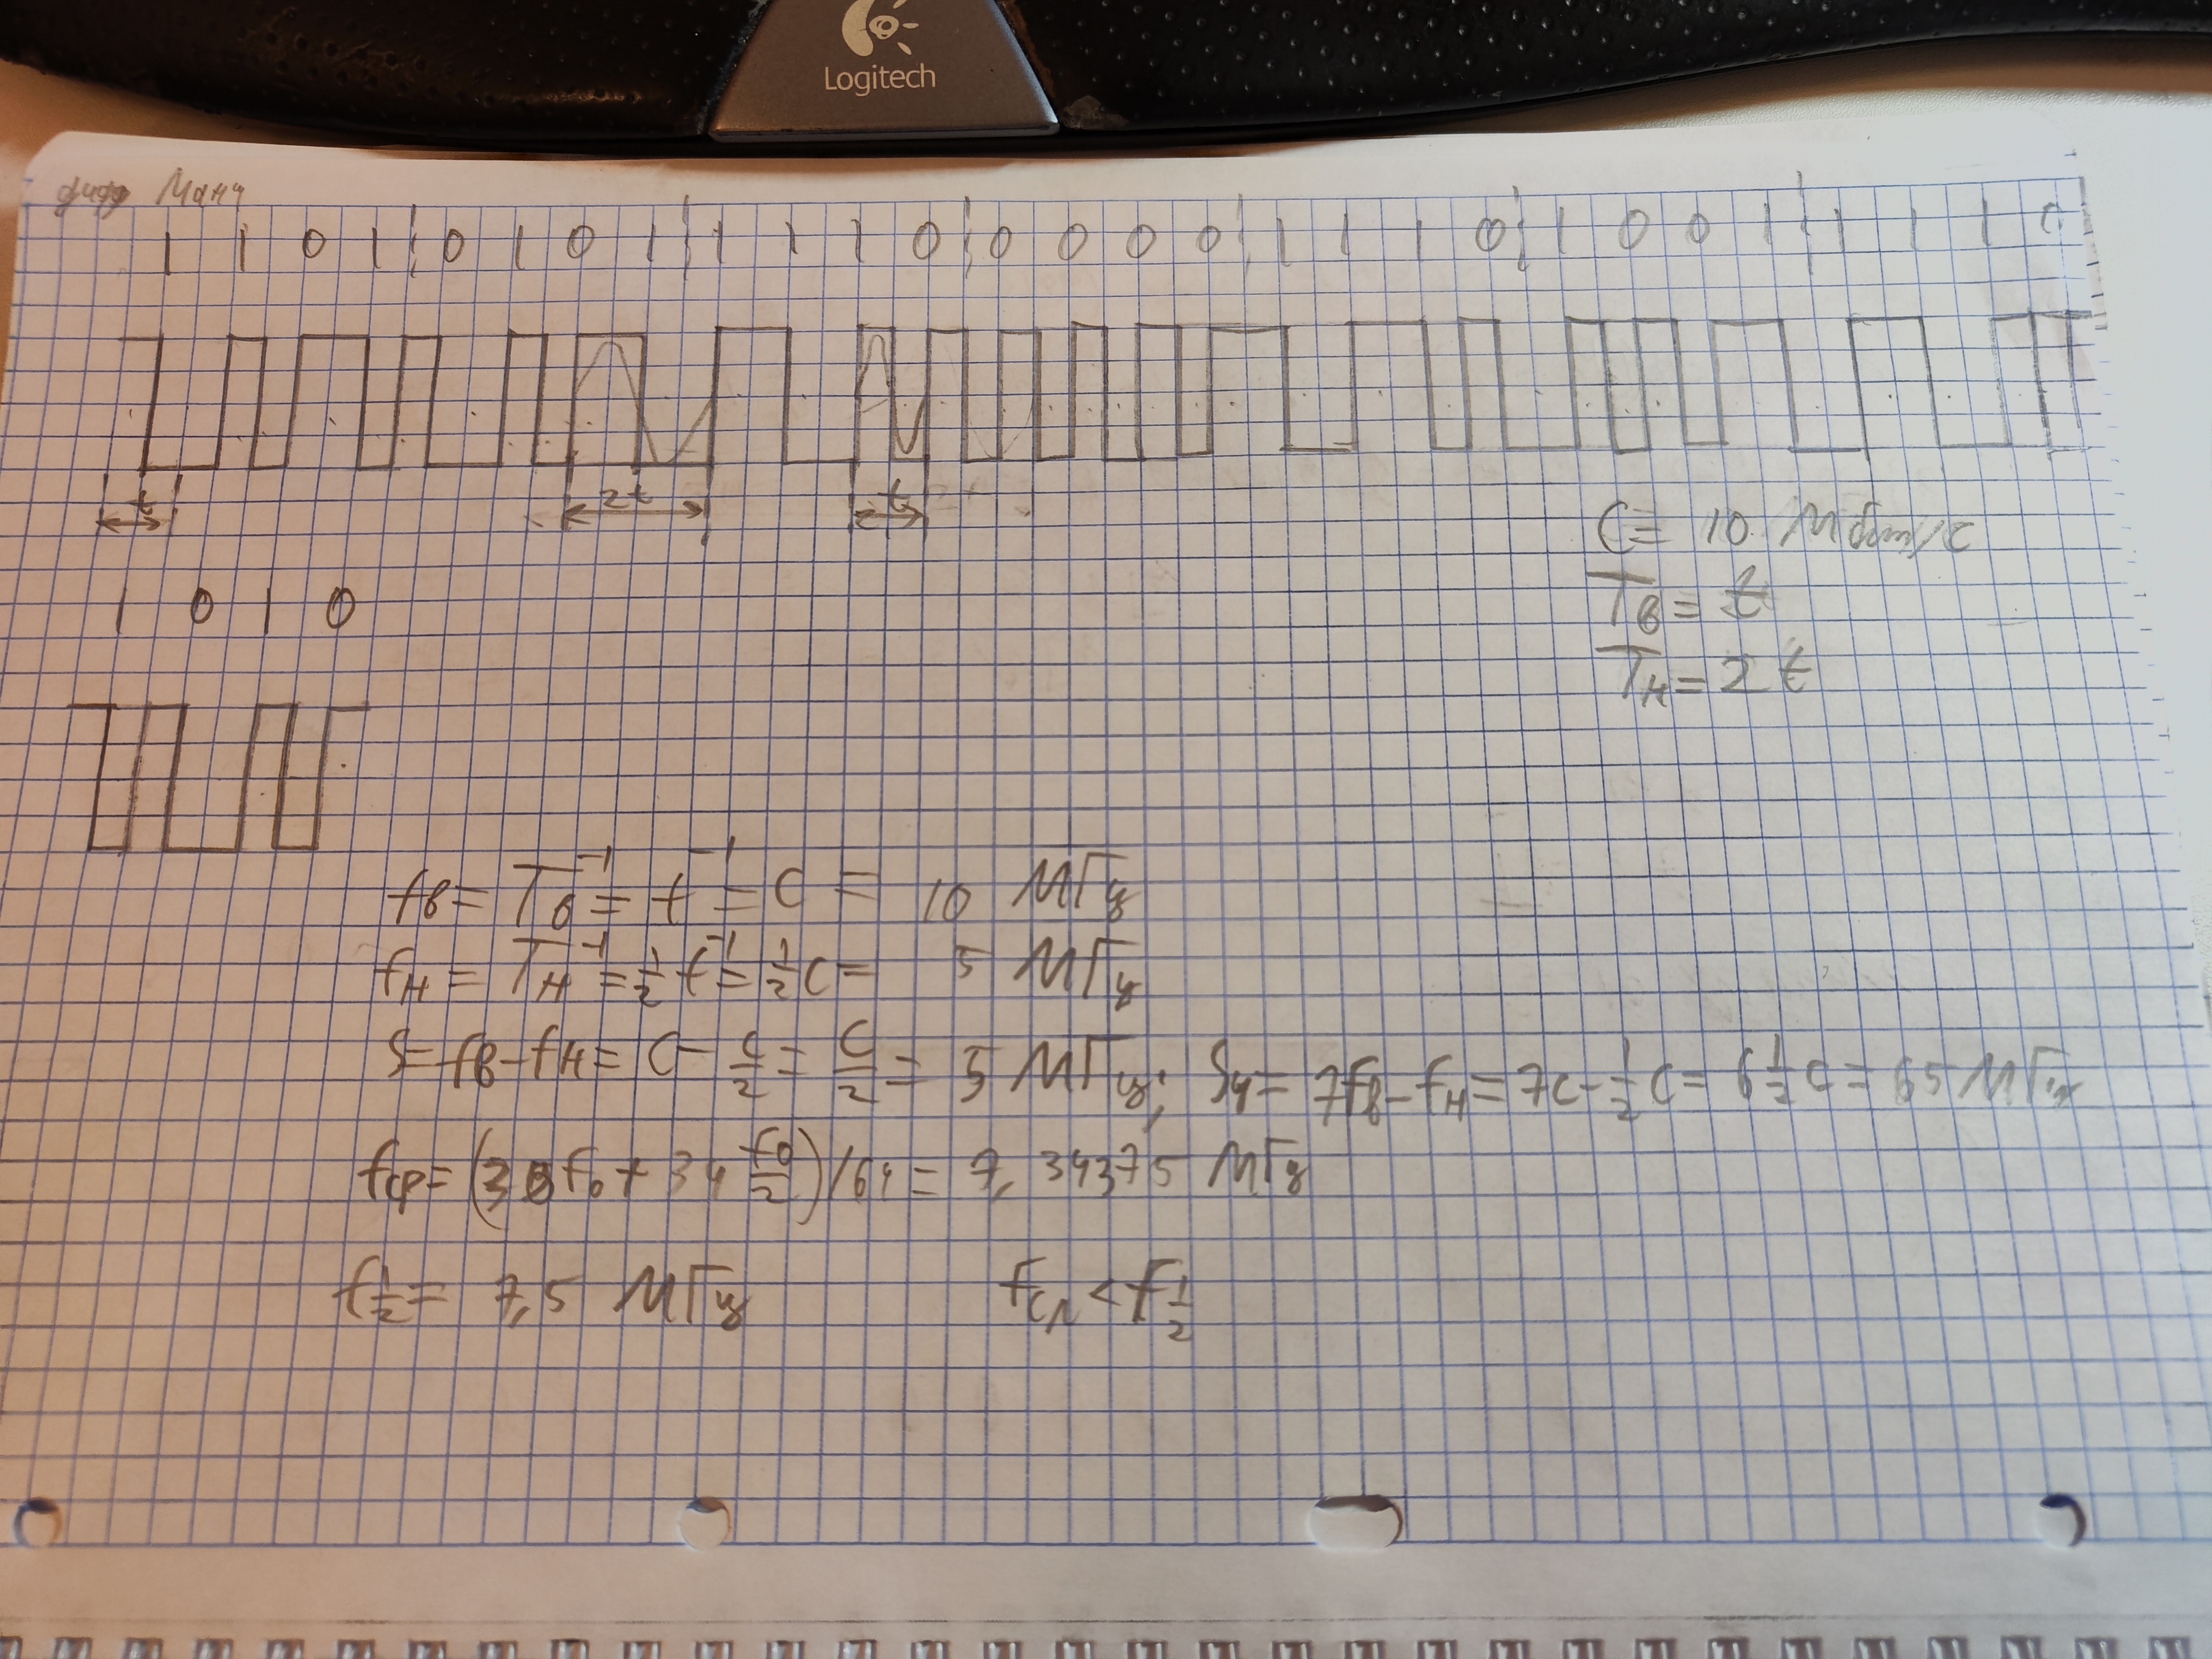 Logitech
дифф Манч
1 1 0 1 0 1 0 1 1 1 1 0 0 0 0 0 1 1 1 0 1 0 0 1 1 1 1 0
t 2t t
C = 10 Мбит/с
Tв = t
Tн = 2t
1 0 1 0
fв = Tв⁻¹ = t⁻¹ = C = 10 МГц
fн = Tн⁻¹ = 1/2 t⁻¹ = 1/2 C = 5 МГц
S = fв - fн = C - C/2 = C/2 = 5 МГц; Sч = 7fв - fн = 7C - 1/2 C = 6 1/2 C = 65 МГц
fср = (30f₀ + 34 f₀/2)/64 = 7,34375 МГц
f 1/2 = 7,5 МГц fср < f 1/2